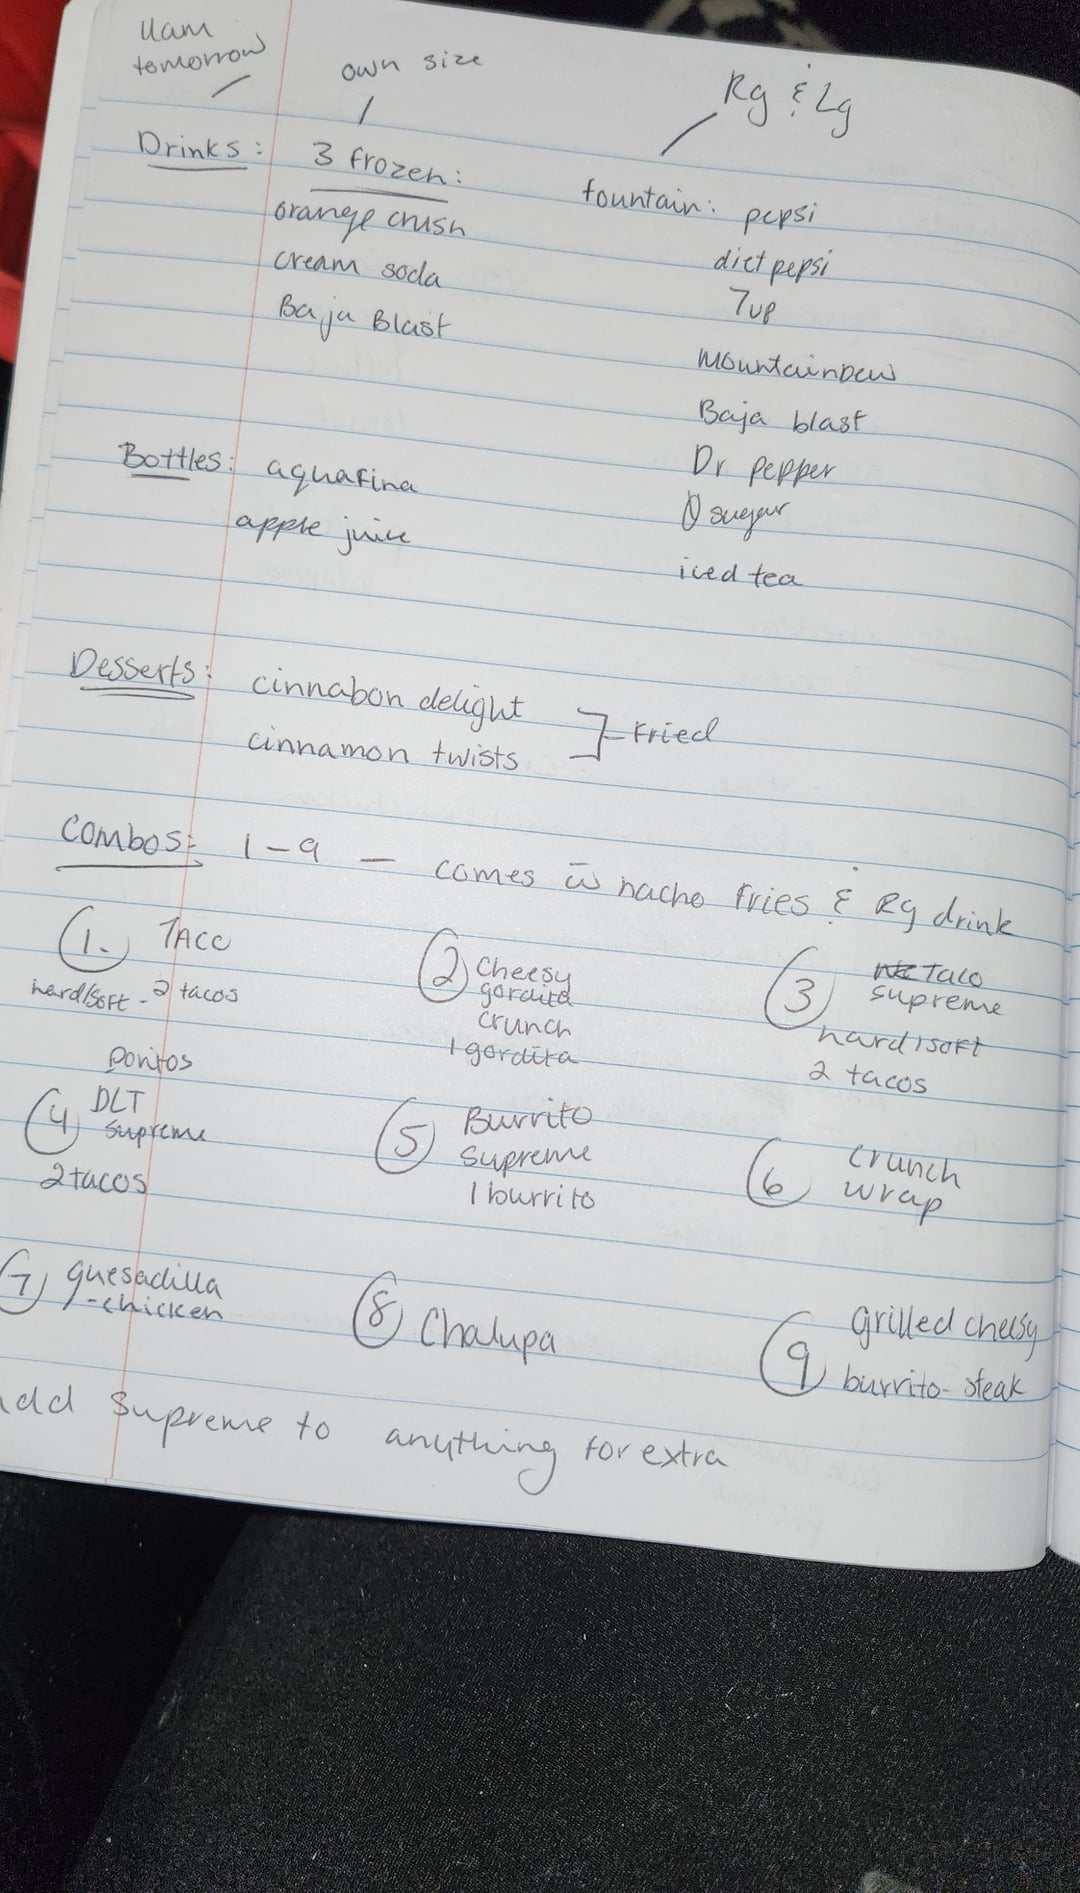 11am
tomorrow
own size
Rg & Lg
Drinks: 3 frozen:
orange crush
cream soda
Baja Blast
fountain: pepsi
diet pepsi
7up
Mountain Dew
Baja blast
Dr pepper
0 sugar
iced tea
Bottles: aquafina
apple juice
Desserts: cinnabon delight
cinnamon twists
Fried
Combos: 1-9 - comes w̄ nacho fries & Rg drink
1. TACO
hard/soft - 2 tacos
2 Cheesy
gordita
crunch
1 gordita
3 Taco
supreme
hard/soft
2 tacos
Doritos
4 DLT
supreme
2 tacos
5 Burrito
supreme
1 burrito
6 crunch
wrap
7 quesadilla
- chicken
8 Chalupa
9 grilled cheesy
burrito - steak
add supreme to anything for extra